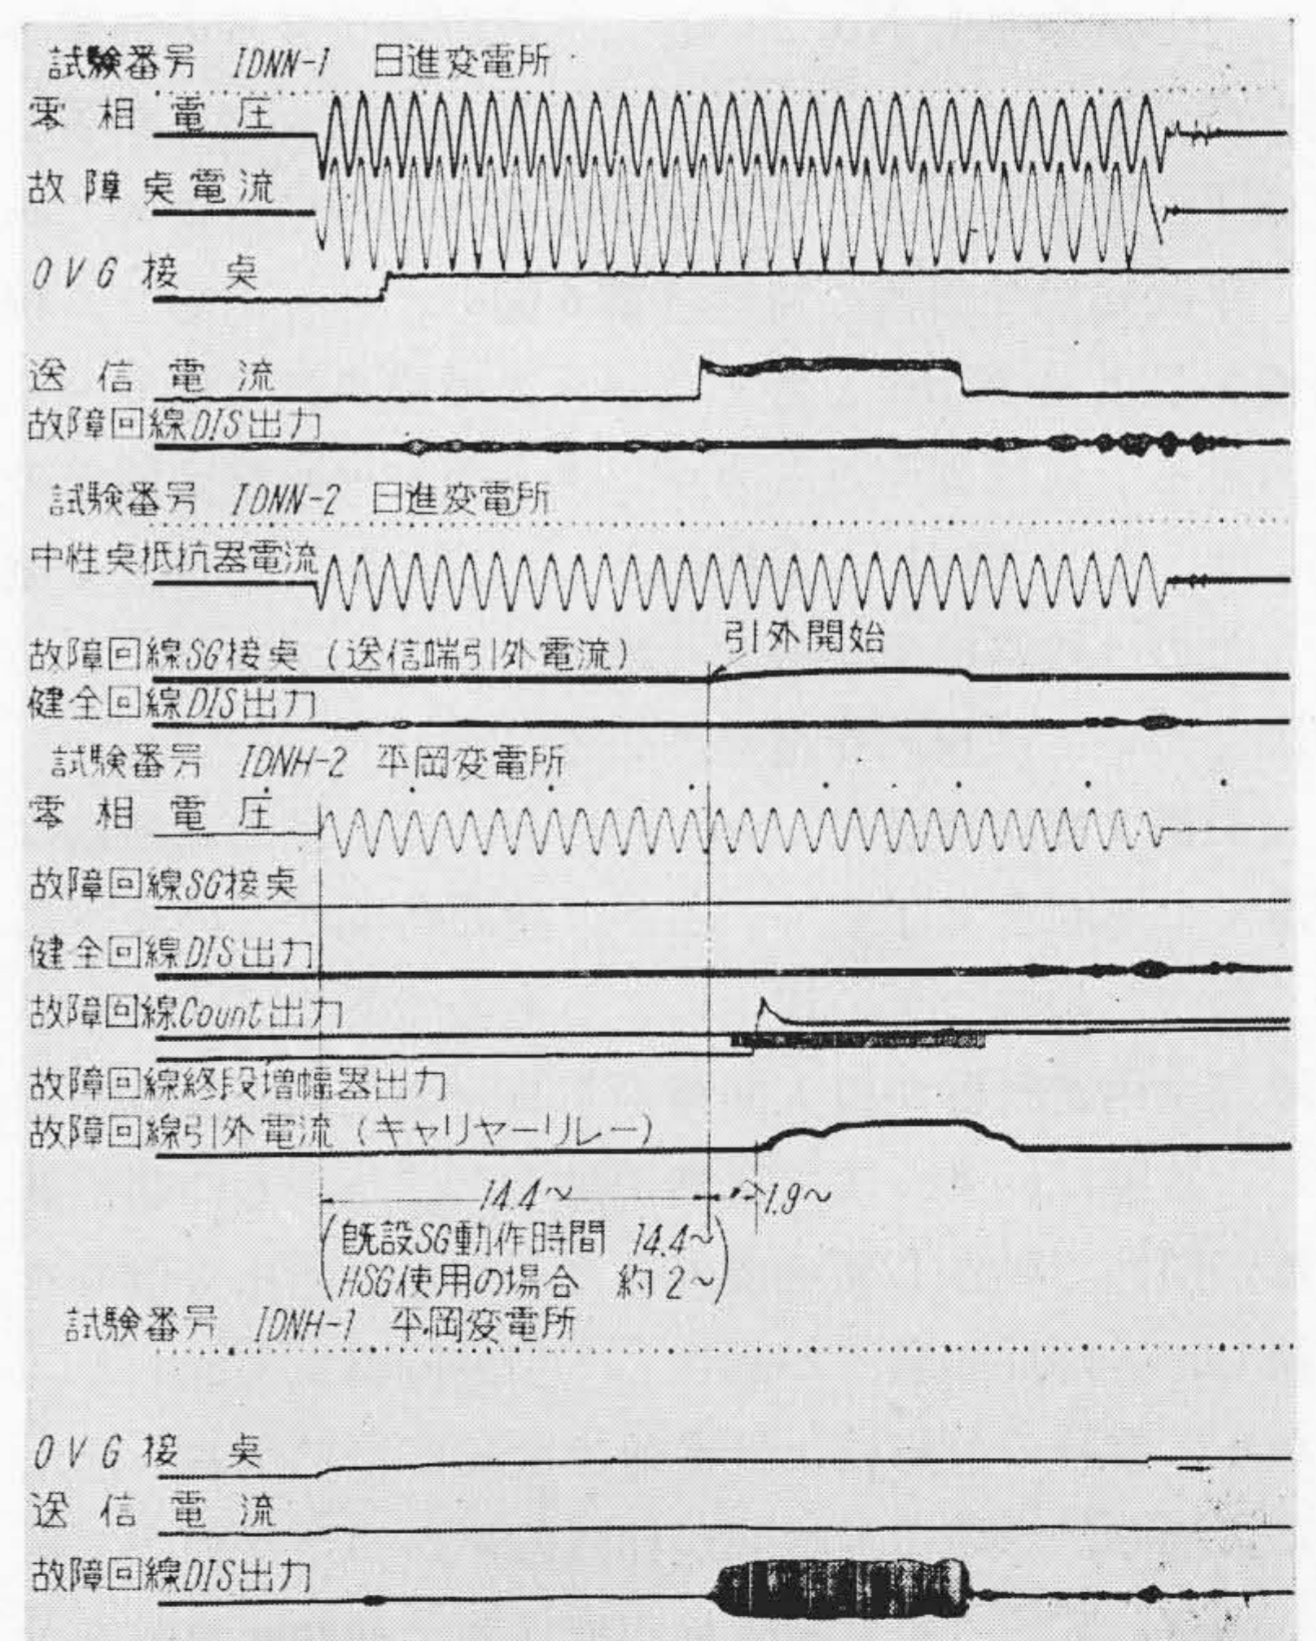 試験番号 IDNN-1 日進変電所
零相電圧
故障点電流
OVG接点
送信電流
故障回線DIS出力
試験番号 IDNN-2 日進変電所
中性点抵抗器電流
引外開始
故障回線SG接点(送信端引外電流)
健全回線DIS出力
試験番号 IDNH-2 平岡変電所
零相電圧
故障回線SG接点
健全回線DIS出力
故障回線Count出力
故障回線終段増幅器出力
故障回線引外電流(キャリヤーリレー)
14.4~ 1.9~
(既設SG動作時間 14.4~
HSG使用の場合 約2~)
試験番号 IDNH-1 平岡変電所
OVG接点
送信電流
故障回線DIS出力